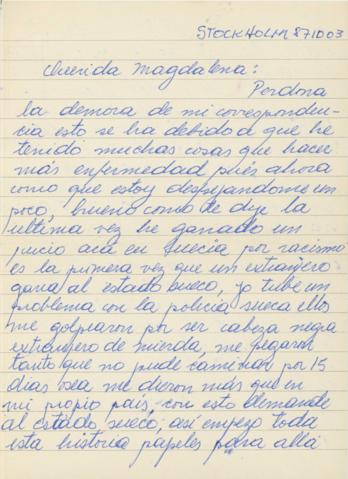 STOCKHOLM 871003
Querida Magdalena:
Perdona
la demora de mi corresponden-
cia esto se ha debido a que he
tenido muchas cosas que hacer
más enfermedad pués ahora
como que estoy despejandome un
poco, bueno como te dije la
ultima vez he ganado un
juicio acá en Suecia por racismo
es la primera vez que un extranjero
gana al estado sueco, yo tube un
problema con la policía sueca ellos
me golpiaron por ser cabeza negra
extranjero de mierda, me pegaron
tanto que no pude caminar por 15
dias osea me dieron más que en
mi propio país, con esto demande
al estado sueco, así empezo toda
esta historia papeles para allá